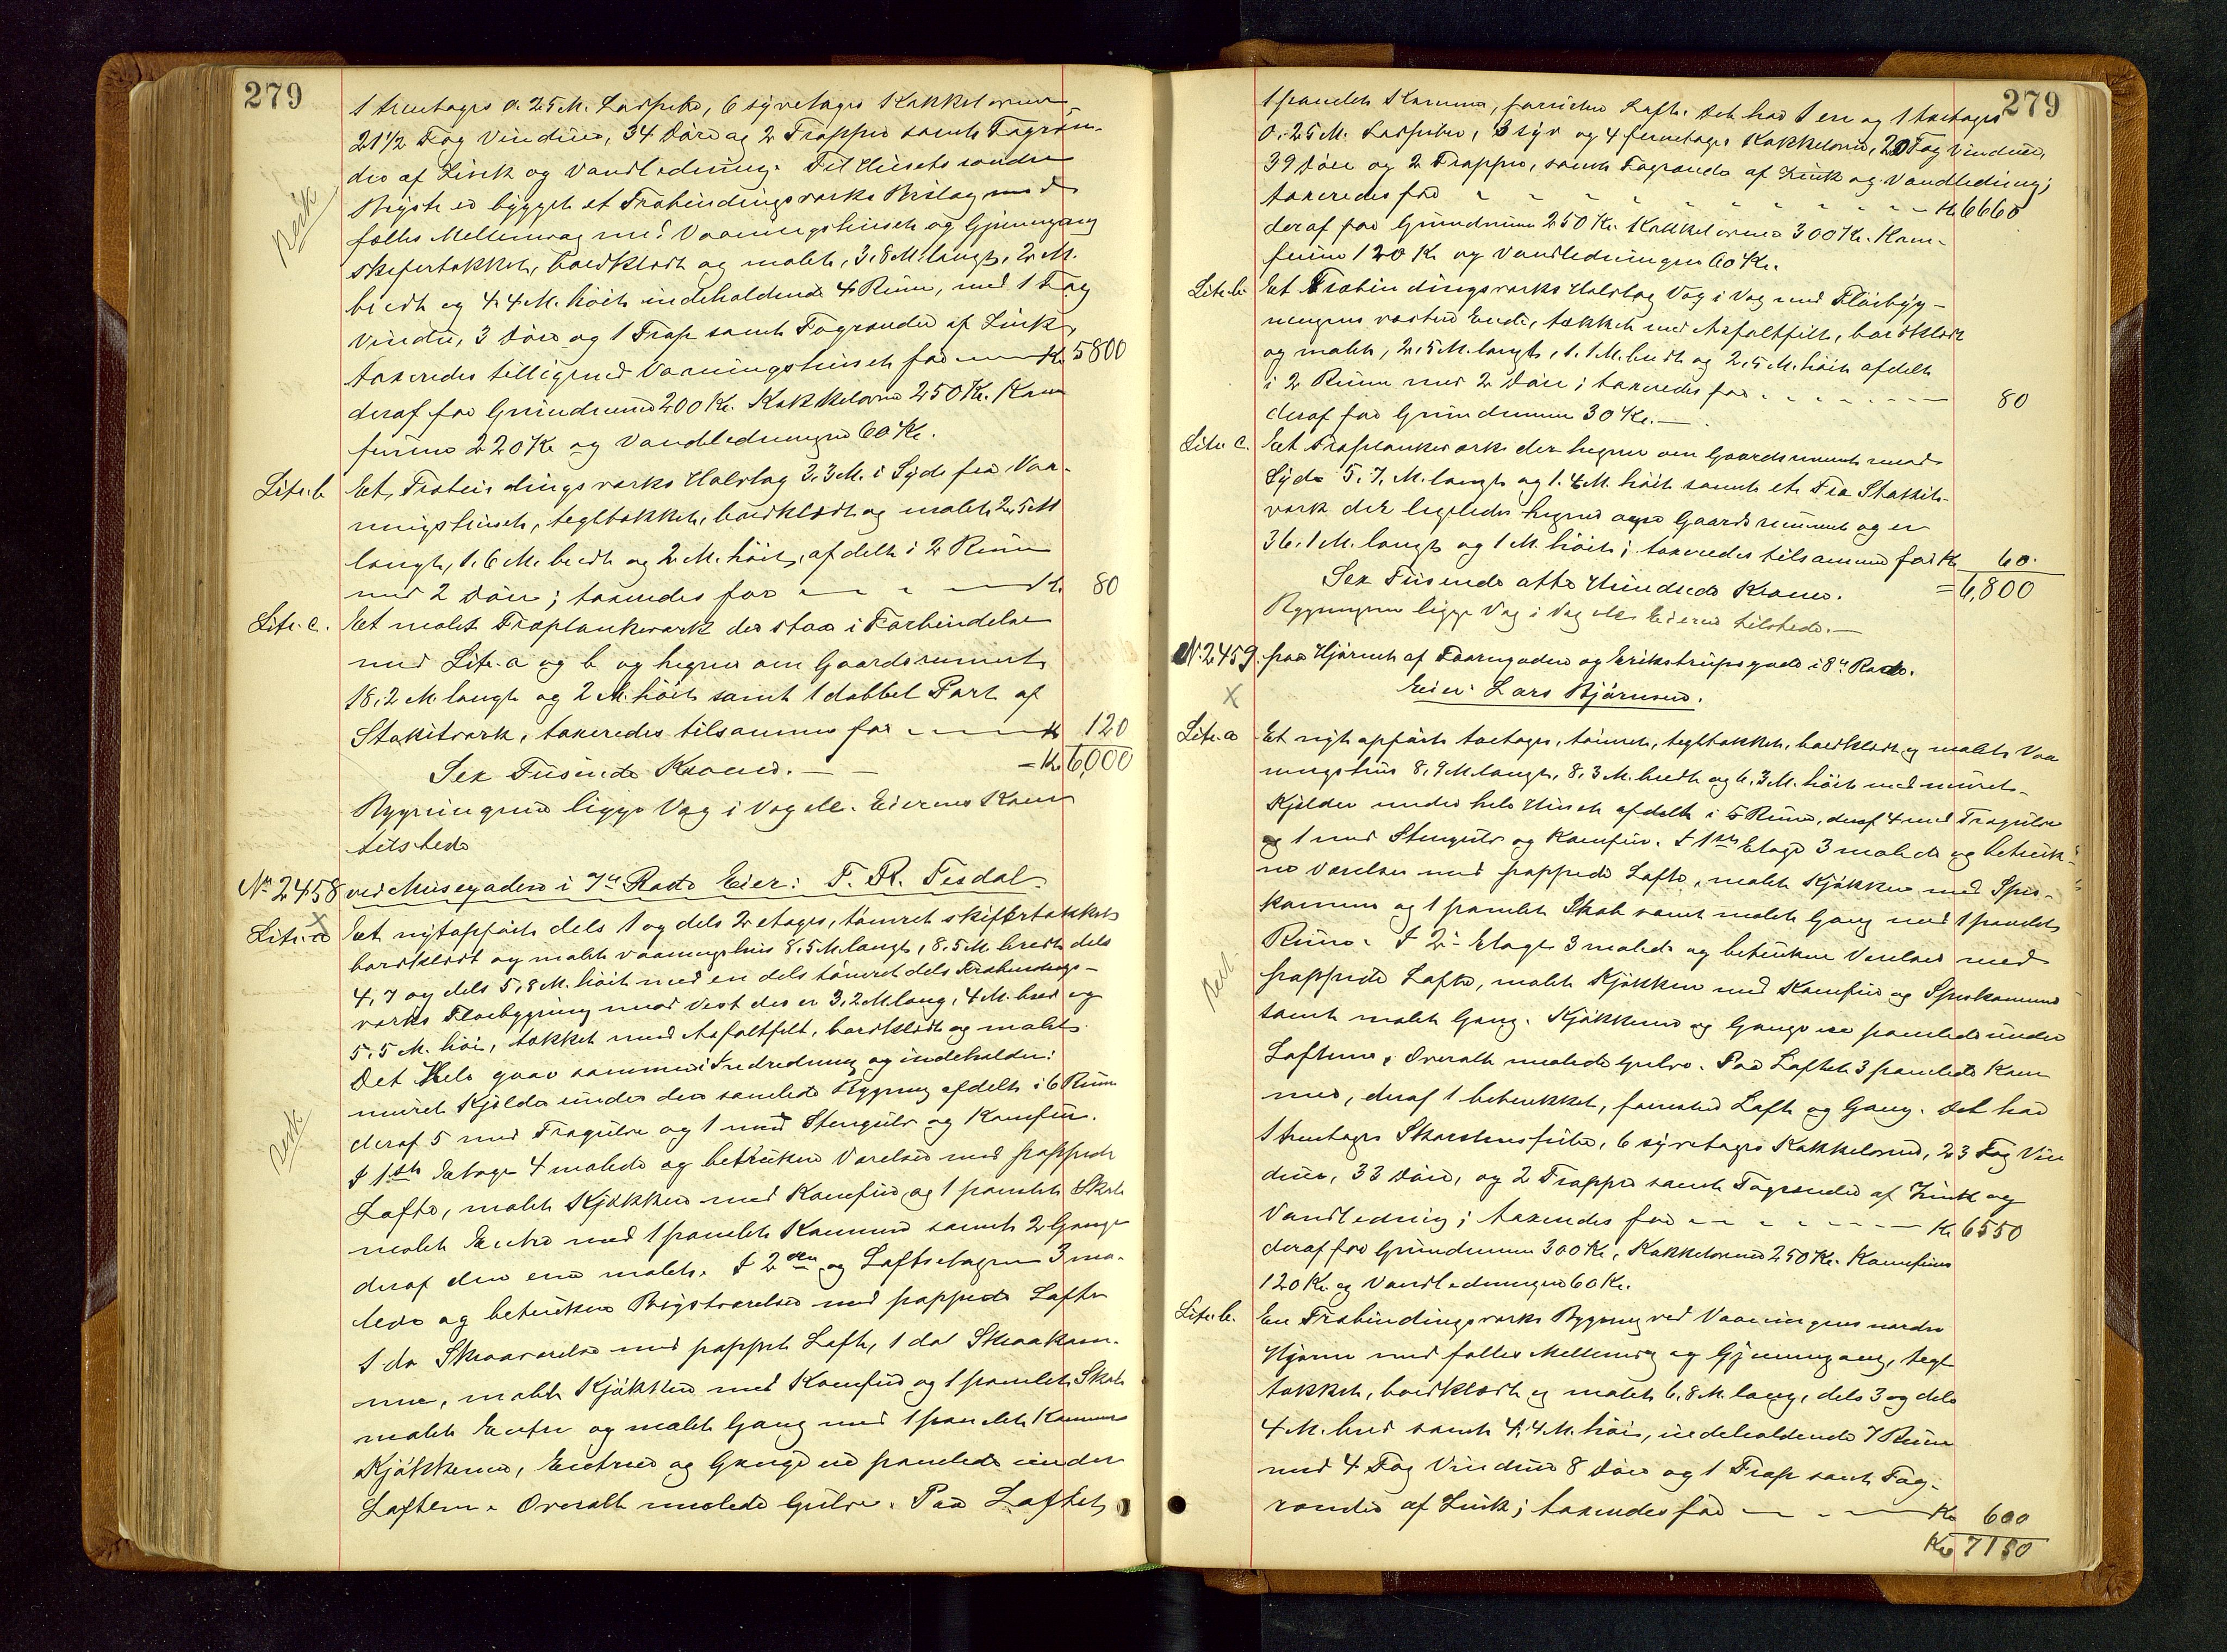 279
1 treetages o. 25 M. Ladpibe, 6 syvetages Kakkelovne
21 1/2 Fag Vinduer, 34 Döre og 2 Trapper samt Tagrön-
der af Zink og Vandledning. Til Husets sondre
er bygget et Træbindingsværks Bislag med
fælles Mellemvæg med Vaaningshuset og Gjennemgang
skifertækket, bordklædt og malet, 3,8 M. langt, 2 M.
bredt og 4.4 M. höit indeholdende 4 Rum, med 1 Fag
Vindu, 3 Döre og 1 Trap samt Tagrender af Zink,
taxeredes tilligemed Vaaningshuset for Kr 5800
deraf for Grundmuren 200 Kr. Kakkelovne 250 Kr. Kom
furene 220 Kr og Vandledningen 60 Kr.
Litr. b Et Træbindingsværks Halvtag 3.3 M. i Syd fra Vaa-
ningshuset, tegltækket, bordklædt og malet 2,5 M
langt, 1.6 M. bredt og 2 M. höit, afdelt i 2 Rum
med 2 Döre; taxeredes for Kr. 80
Litr. c. Et malet Træplankeværk der staar i Forbindelse
med Litr. a og b og hegner om Gaardsrummet
18,2 M. langt og 2 M. höit samt 1 dobbel Port af
Stakitværk, taxeredes tilsammen for Kr 120
Sex Tusinde Kroner. = Kr 6,000
Bygningerne ligge Væg i Væg etc. Eierens Kone
tilstede
No 2458 ved Musegaden i 7de Rode Eier: T. R. Tesdal.
Litr. a Et nytopfört dels 1 og dels 2 etages, tömret skifertækket
bordklædt og malet vaaningshus 8,5 M langt, 8,5 M. bredt dels
4,7 og dels 5,8 M. höit med en dels tömret dels Træbindings-
værks Flöibygning mod Vest der er 3,2 M lang, 4 M. bred og
5.5 M. höi, tækket med Asfaltfilt, bordklædt og malet.
Det Hele gaar sammen i Indredning og indeholder:
muret Kjelder under den samlede Bygning afdelt i 6 Rum
deraf 5 med Trægulve og 1 med Stengulv og Komfur.
I 1ste Etage 4 malede og betrukne Værelser med pappede
Lofte, malet Kjökken med Komfur og 1 panelet Skab
malet Entre med 1 panelet Kammer samt 2 Gange
deraf den ene malet. I 2den og Loftsetagen 3 ma-
lede og betrukne Kvistværelser med pappede Lofte
1 do Skraaværelse med pappet Loft, 1 do Skraakam-
mer, malet Kjökken med Komfur og 1 panelet Skab
malet Entre og malet Gang med 1 panelet Kammer
Kjökkenet, Entreer og Gange er panelede under
Loftene. Overalt malede Gulve. Paa Loftet
279
1 panelet Kammer, forresten Loft. Det har 1 en og 1 toetages
0.25 M. Ladpiber, 3 syv og 4 femetages Kakkelovne, 20 Fag Vinduer,
39 Döre og 2 Trapper, samt Tagrender af Zink og Vandledning;
taxeredes for Kr 6660
deraf for Grundmuren 250 Kr. Kakkelovnene 300 Kr. Kom-
furene 120 Kr og Vandledningen 60 Kr.
Litr. b. Et Træbindingsværks Halvtag Væg i Væg med Flöibyg-
ningens vestre Ende, tækket med Asfaltfilt, bordklædt
og malet, 2,5 M. langt, 1.1 M. bredt og 2,5 M. höit afdelt
i 2 Rum med 2 Döre; taxeredes for 80
deraf for Grundmuren 30 Kr.
Litr. c. Et Træplankeværk der hegner om Gaardsrummet mod
Syd 5.7. M. langt og 1.4 M. höit samt et Træ Stakit-
værk der ligeledes hegner Gaardsrummet og er
36.1 M. langt og 1 M. höit; taxeredes tilsammen for Kr 60.
Sex Tusinde otte Hundrede Kroner. = 6,800
Bygningerne ligge Væg i Væg etc Eieren tilstede.
No. 2459 paa Hjörnet af Taarngaden og Erikstrupsgade i 8de Rode.
Eier: Lars Björnsen.
Litr. a Et nyt opfört toetages, tömret, tegltækket, bordklædt og malet Vaa
ningshus 8,9 M. langt, 8,3 M. bredt og 6.3 M. höit med muret
Kjelder under hele Huset afdelt i 5 Rum, deraf 4 med Trægulve
og 1 med Stengulv og Komfur. I 1ste Etage 3 malede og betruk-
ne Værelser med pappede Lofte, malet Kjökken med Spis-
kammer og 1 panelet Skab samt malet Gang med 1 panelet
Rum. I 2. Etage 3 malede og betrukne Værelser med
pappede Lofte, malet Kjökken med Komfur og Spiskammer
samt malet Gang. Kjökkenet og Gange er panelede under
Loftene, Overalt malede Gulve. Paa Loftet 3 panelede Kam
mer, deraf 1 betrukket, forresten Loft og Gang. Det har
1 treetages Skorstenspibe, 6 syvetages Kakkelovne, 23 Fag Vin
duer, 33 Döre, og 2 Trapper samt Tagrender af Zink og
Vandledning; taxeredes for Kr 6550
deraf for Grundmuren 300 Kr, Kakkelovnene 250 Kr. Komfurene
120 Kr og Vandledningen 60 Kr.
Litr. b. En Træbindingsværks Bygning ved Vaaningens nordre
Hjörne med fælles Mellemvæg og Gjennemgang, tegl
tækket, bordklædt og malet 6,8 M. lang, dels 3 og dels
4 M. bred samt 4,4 M. höi, indeholdende 7 Rum
med 4 Fag Vinduer 8 Döre og 1 Trap samt Tag-
render af Zink; taxeredes for Kr 600
Kr 7150